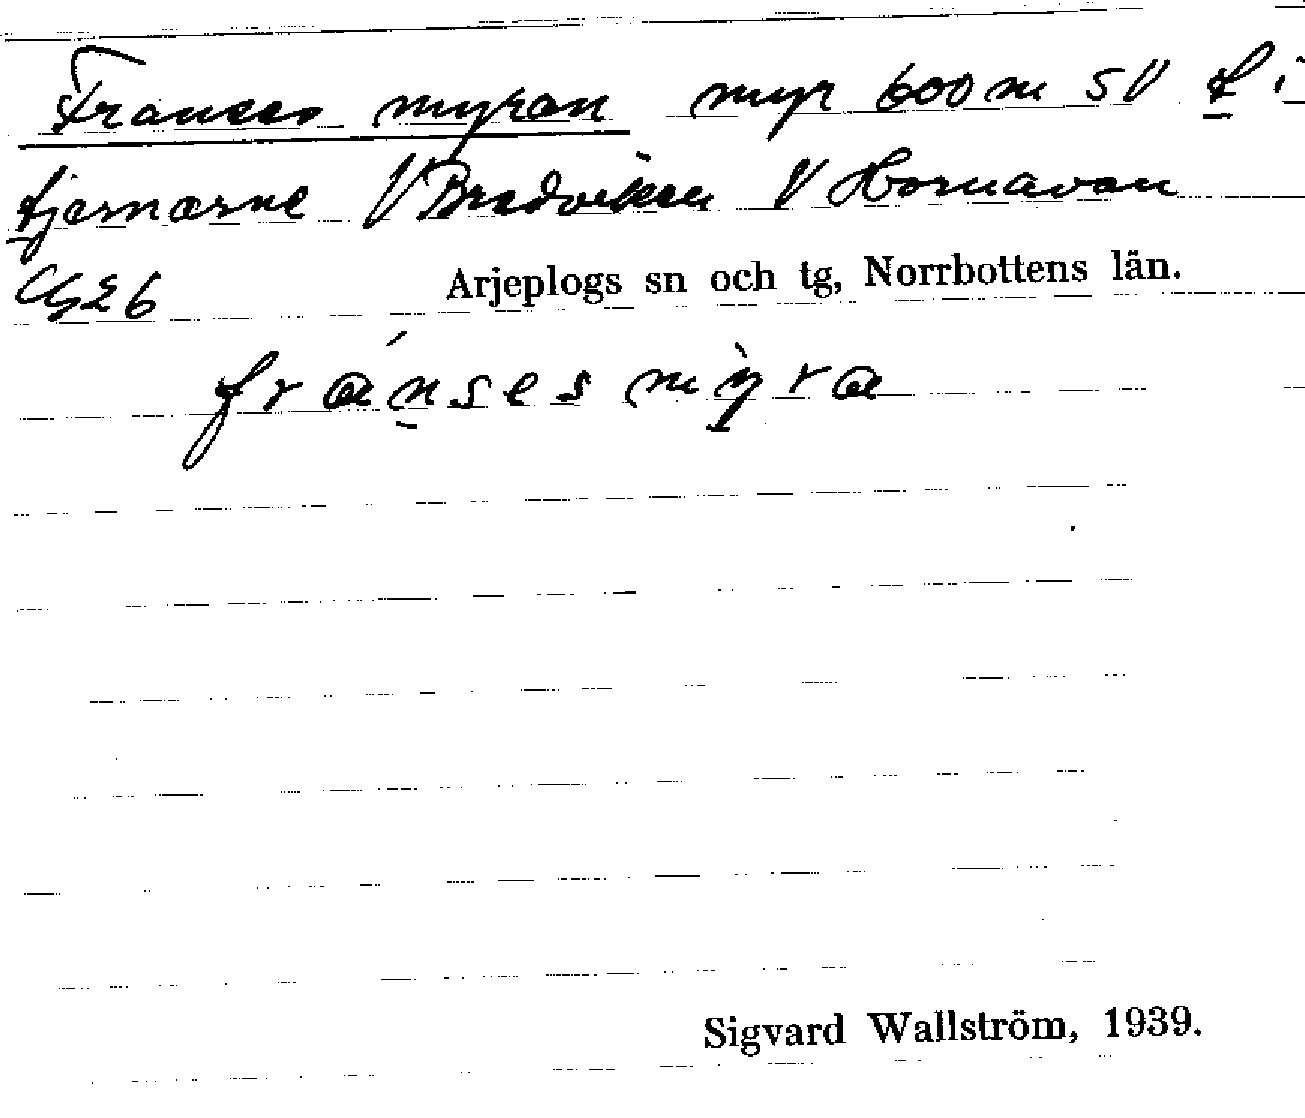 Franses myran myr 600 m SV
tjernarne V Bredviken V Hornavan
Arjeplogs sn och tg, Norrbottens län.
fránsesmyra
Sigvard Wallström, 1939.